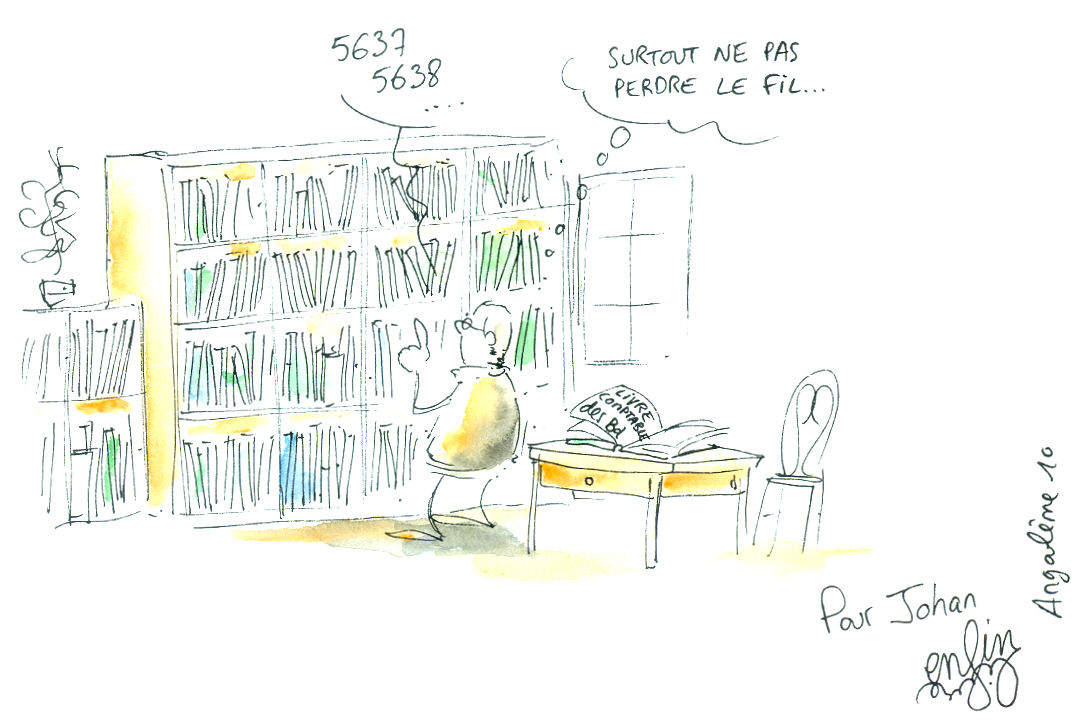 5637
5638
....
SURTOUT NE PAS
PERDRE LE FIL...
LIVRE
COMPTABLE
des Bd
Pour Johan
enfin
Angoulême 10